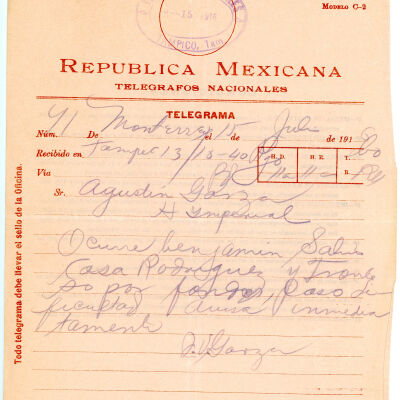 MODELO C-2
15 1916
TAMPICO, TAM
REPUBLICA MEXICANA
TELEGRAFOS NACIONALES
TELEGRAMA
Núm. 41 De Monterrey 15 el de Julio 191
Recibido en Tampco 13/15-40
H. D. H. E. T.
Via R.
Sr. Agustín Garza
H Imperial
Ocurre benjamin Salinas
Casa Rodriguez y
so por fondos, Caso di
ficultad avisa inmedia
tamente
Garza
Todo telegrama debe llevar el sello de la Oficina.